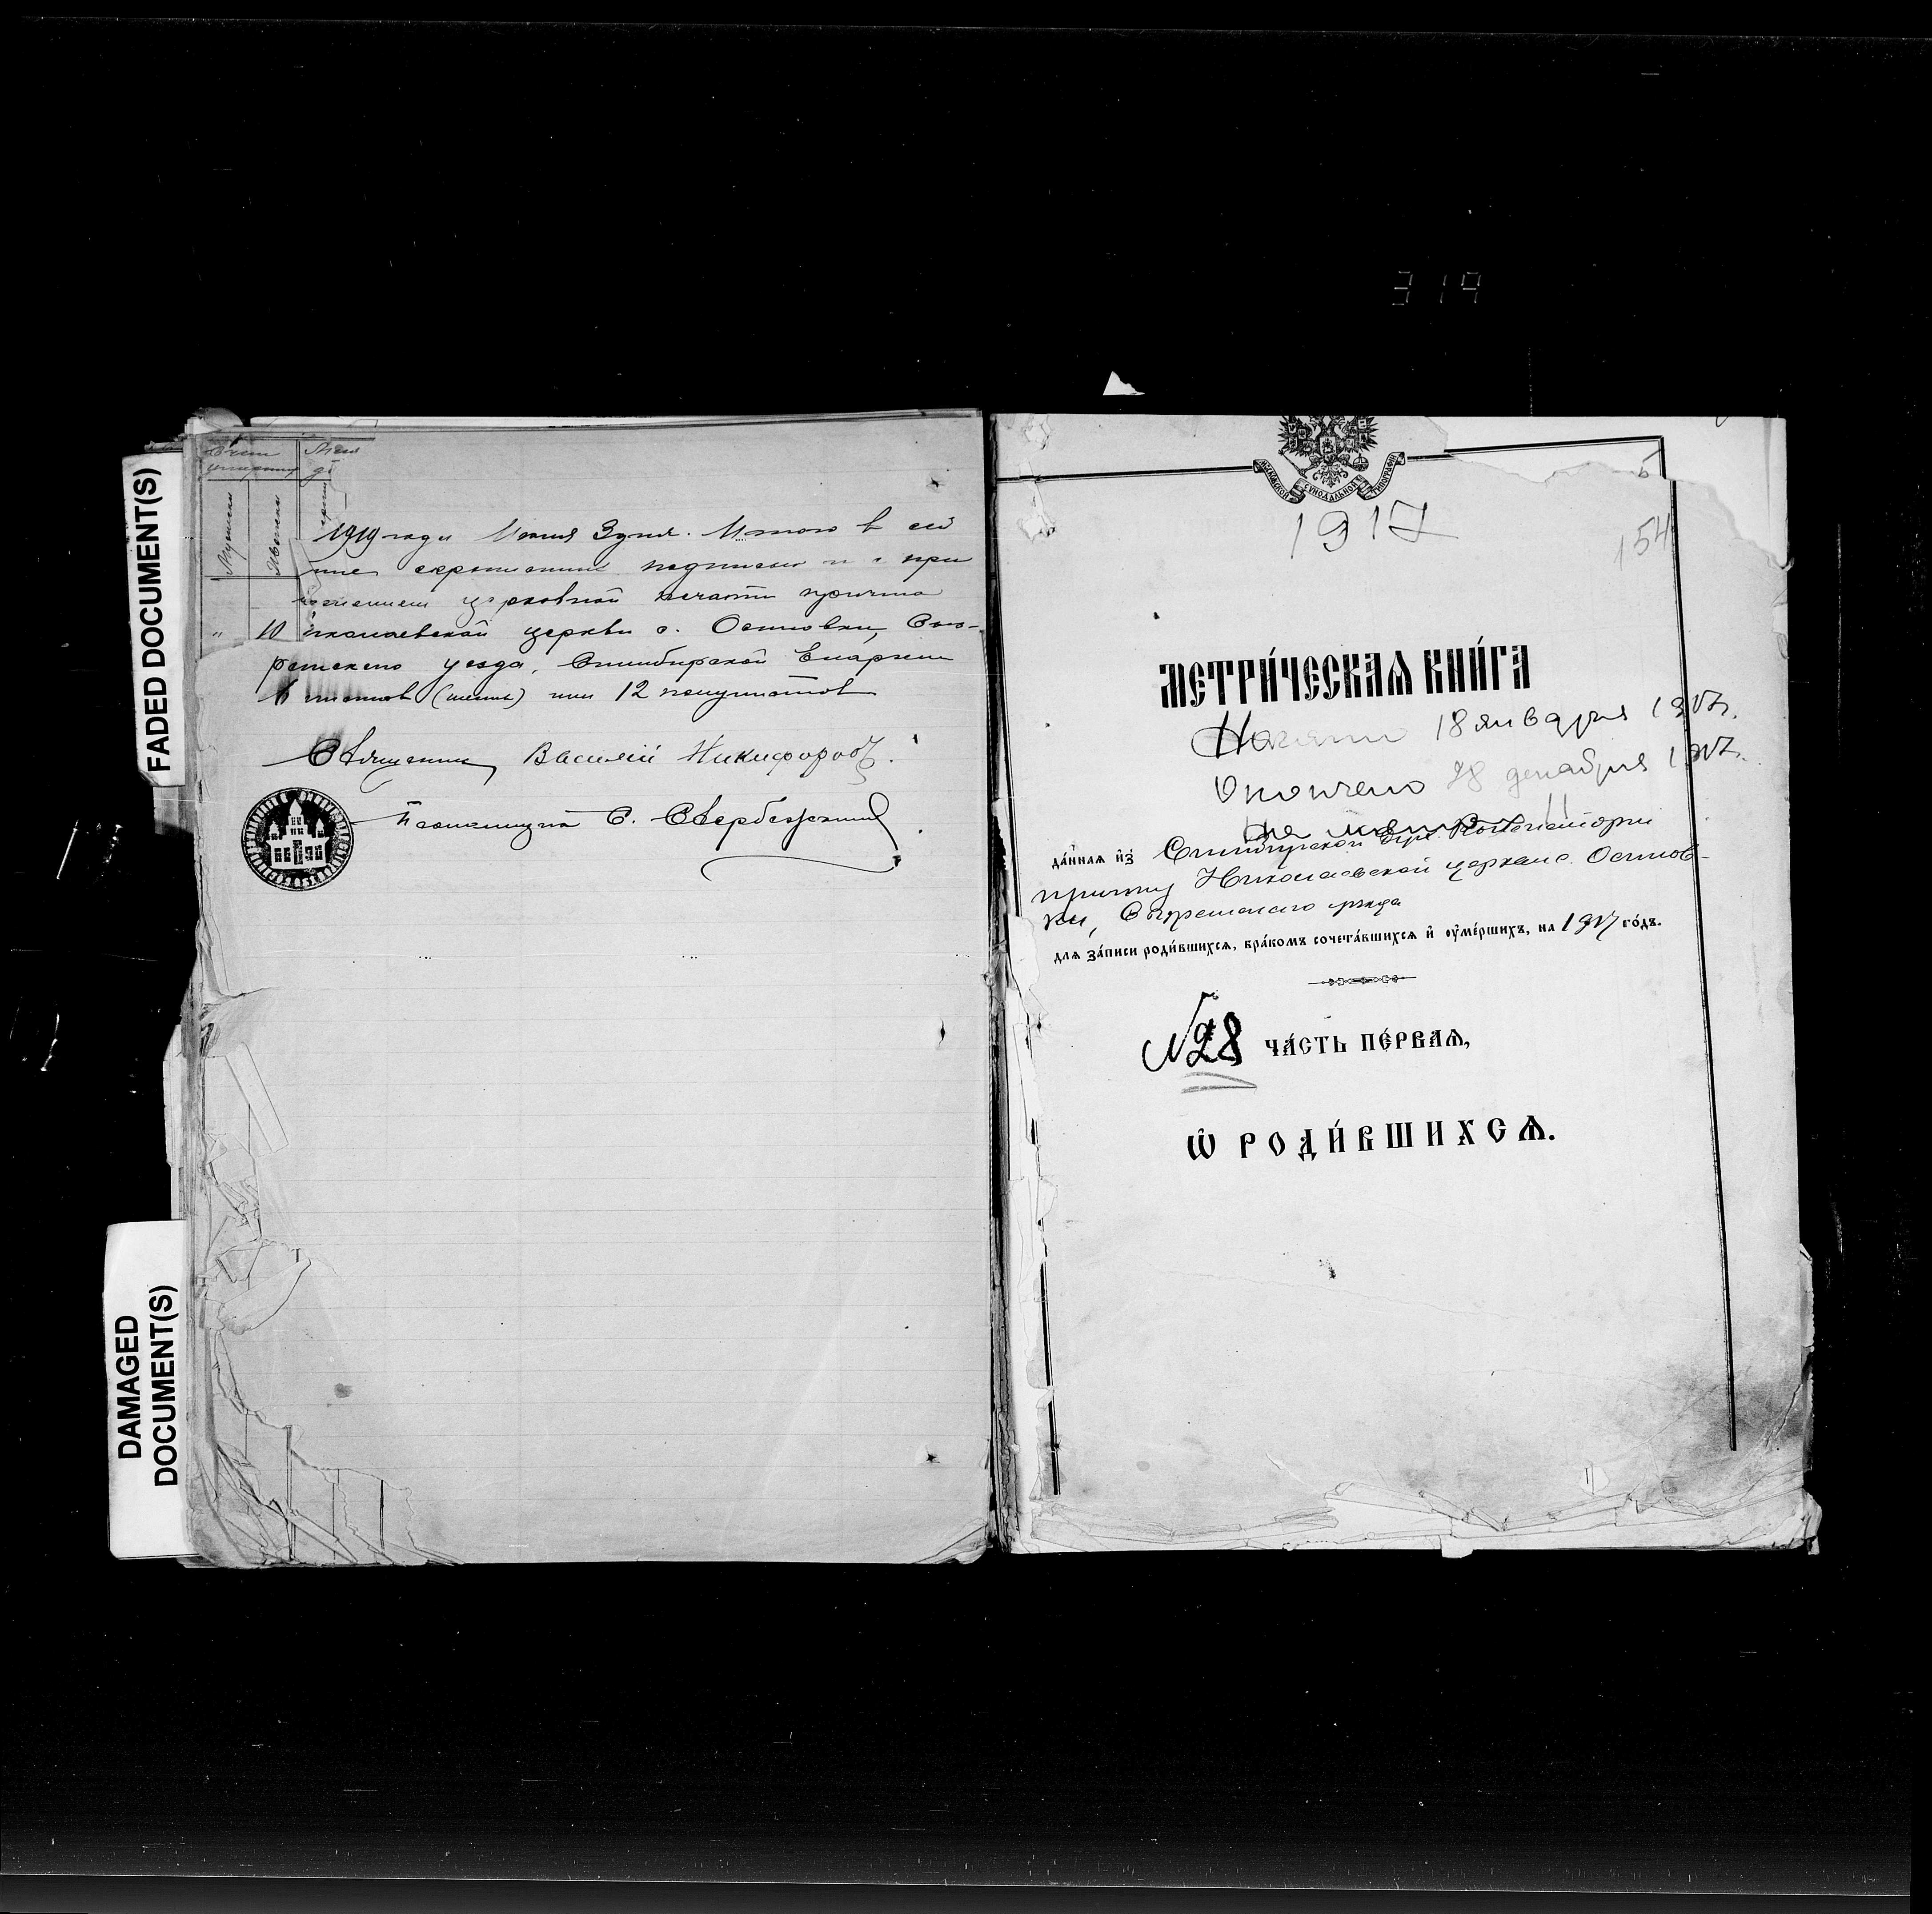 319
FADED DOCUMENT(S)
DAMAGED
DOCUMENT(S)
Мужеска
Женска
1919 года Июня 3 дня. Итого в сей
скрепленных подписью и при
церковной печати причта
Николаевской церкви с. Осиновки, Сыз-
ранскаго уезда, Симбирской Епархии
6 листов (шесть) или 12 полулистов
Священник Василий Никифоровъ.
Псаломщик С.
5
МОСКОВСКОЙ СУНОДАЛЬНОЙ ТИПОГРАФІИ
1917
154
МЕТРИ́ЧЕСКАѦ КНИ́ГА
Начато 18 января 1917г.
Окончено 28 декабря 1917г.
да́ннаѧ и҆зъ Симбирской Дух. Консисторіи
причту Николаевской церкви с. Осинов-
ки, Сызранскаго уѣзда
длѧ за́писи роди́вшихсѧ, бра́комъ сочета́вшихсѧ и҆ ᲂу҆ме́ршихъ, на 1917 го́дъ.
№28 ЧА́СТЬ ПЕ́РВАѦ,
Ѡ҆ РОДИ́ВШИХСѦ.